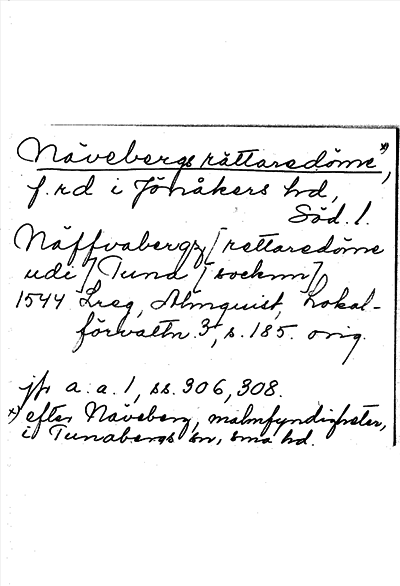 Nävebergs rättaredöme*),
f.rd i Jönåkers hd,
Söd. l.
Näffvabergz [rettaredöme
udi] Tuna [socknn]
1544 Lreg, Almquist, Lokal-
förvaltn. 3, s. 185. orig.
jfr a. a. 1, ss. 306, 308.
*) efter Näveberg, malmfyndigheter,
i Tunabergs sn, sma hd.